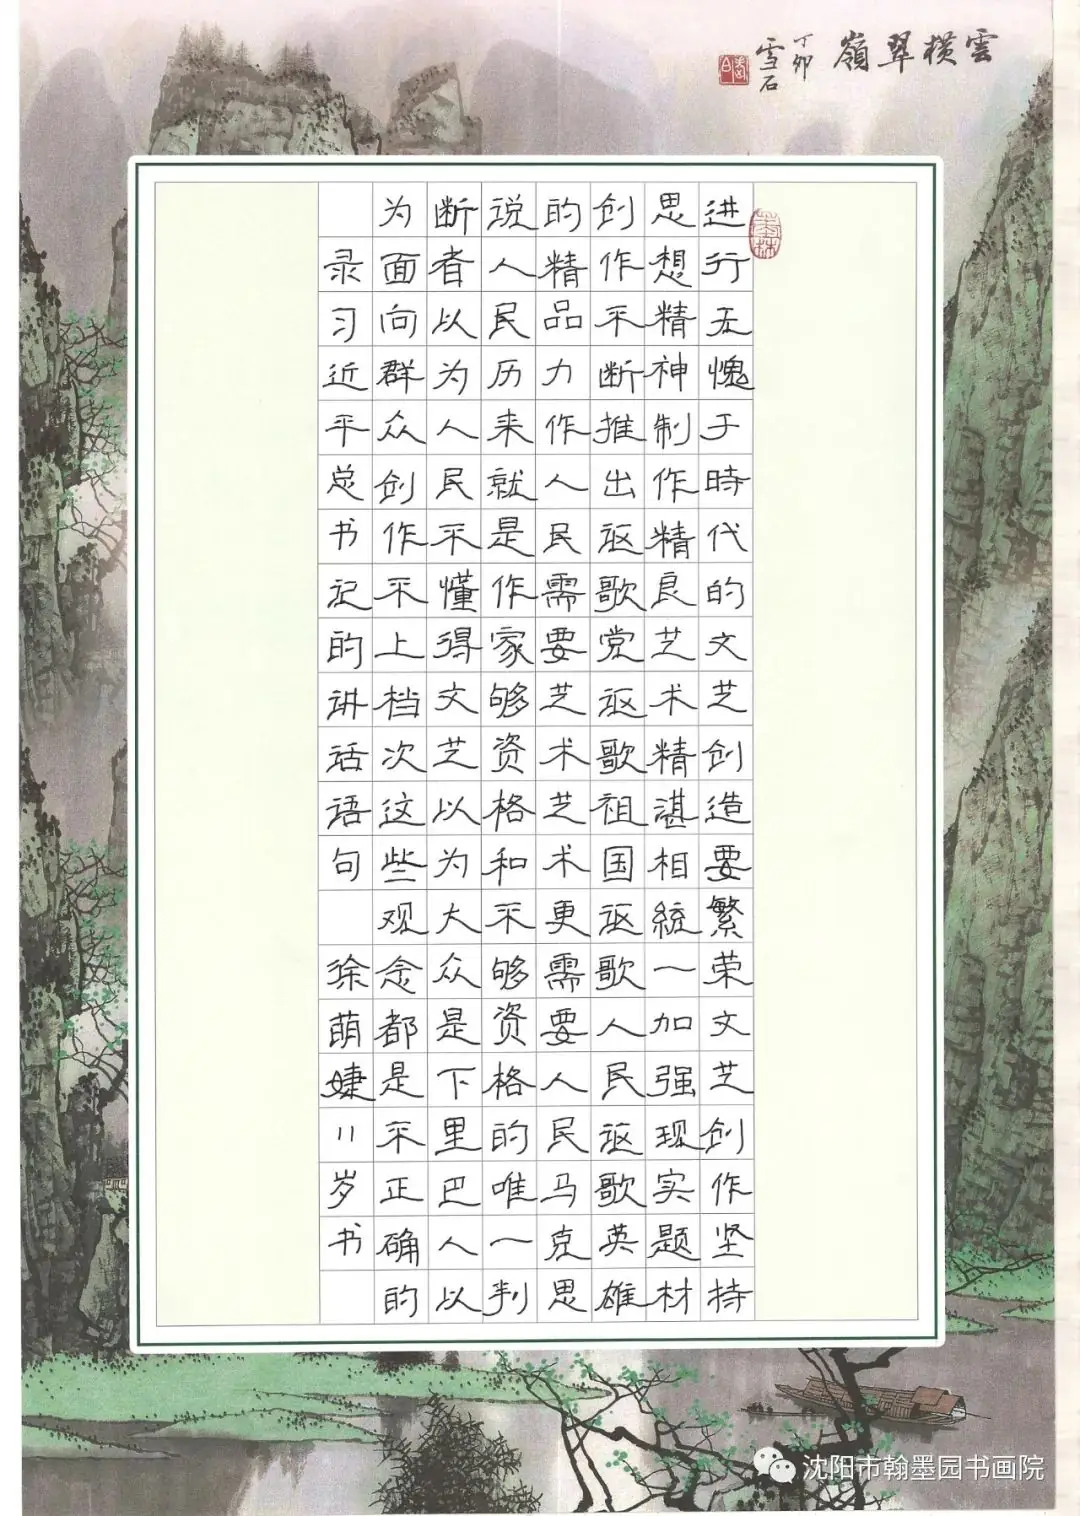 雲横翠嶺
丁卯
雪石
进行无愧于時代的文艺创造要繁荣文艺创作坚持
思想精神制作精良艺术精湛相統一加强现实题材
创作不断推出讴歌党讴歌祖国讴歌人民讴歌英雄
的精品力作人民需要艺术艺术更需要人民马克思
说人民历来就是作家够资格和不够资格的唯一判
断者以为人民不懂得文艺以为大众是下里巴人以
为面向群众创作不上档次这些观念都是不正确的
录习近平总书记的讲话语句 徐萌婕11岁书
沈阳市翰墨园书画院